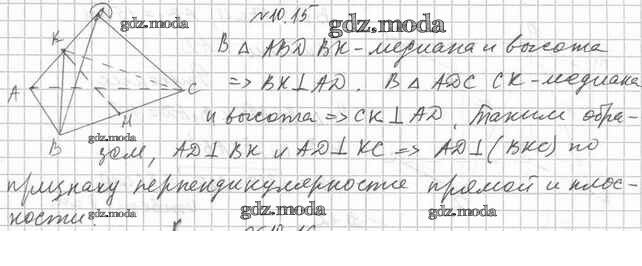 №10.15
gdz.moda
gdz.moda
В △ ABD BK-медиана и высота
=> BK⊥AD. В △ ADC CK-медиана
и высота => CK⊥AD. Таким обра-
gdz.moda
зом, AD⊥BK и AD⊥KC => AD⊥(BKC) по
признаку перпендикулярности прямой и плос-
кости.
gdz.moda
gdz.moda
gdz.moda
K
A
C
M
B